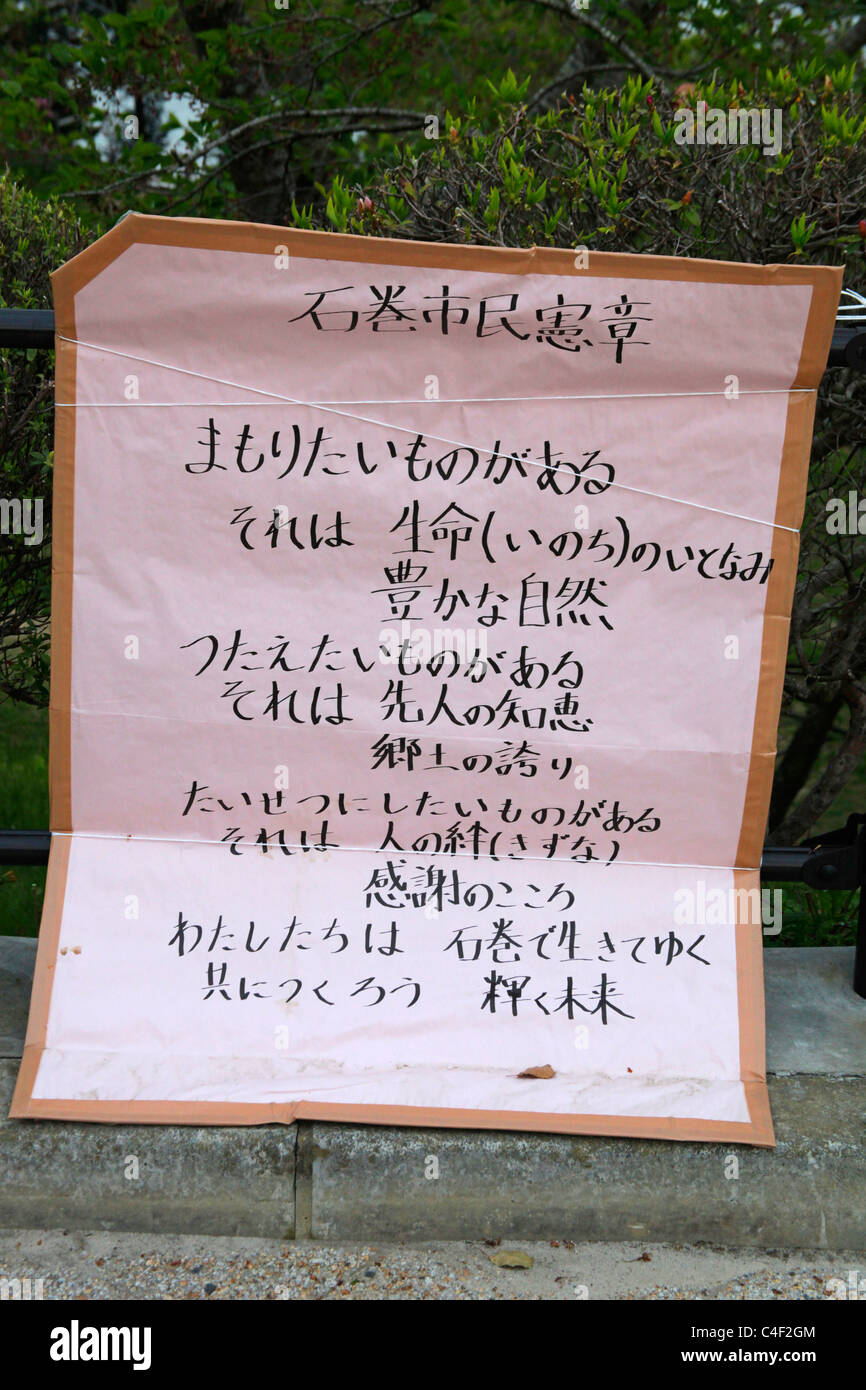 石巻市民憲章
まもりたいものがある
それは 生命(いのち)のいとなみ
豊かな自然
つたえたいものがある
それは 先人の知恵
郷土の誇り
たいせつにしたいものがある
それは 人の絆(きずな)
感謝のこころ
わたしたちは 石巻で生きてゆく
共につくろう 輝く未来
alamy
Image ID: C4F2GM
www.alamy.com